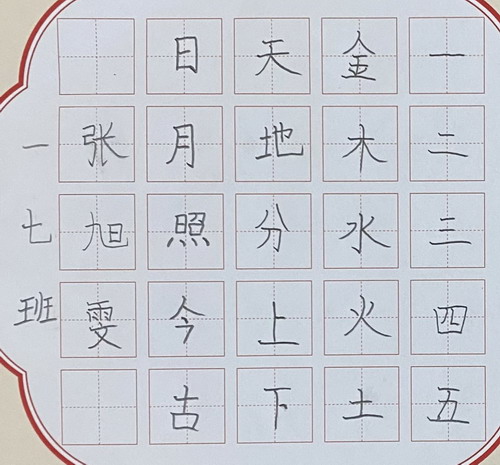 一二三四五
金木水火土
天地分上下
日月照今古
张旭雯
一七班